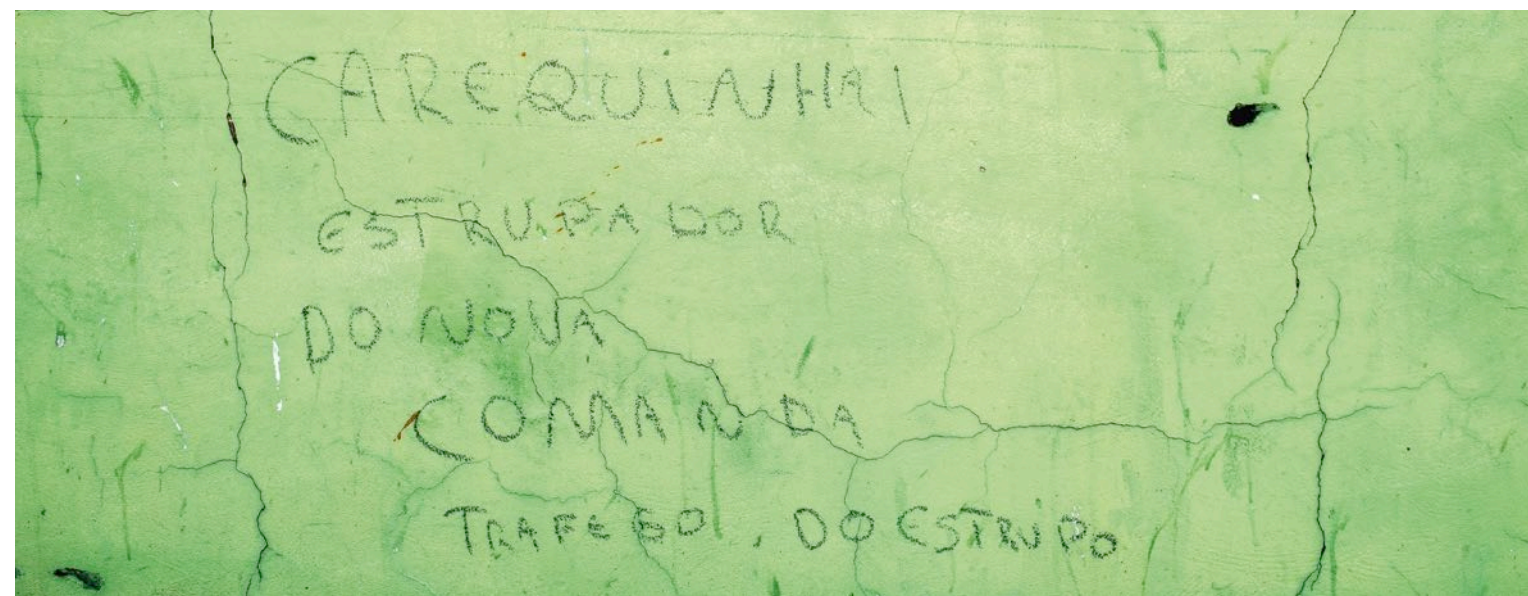 CAREQUINHA
ESTRUPADOR
DO NOVA
COMANDA
TRAFEGO. DO ESTRUPO